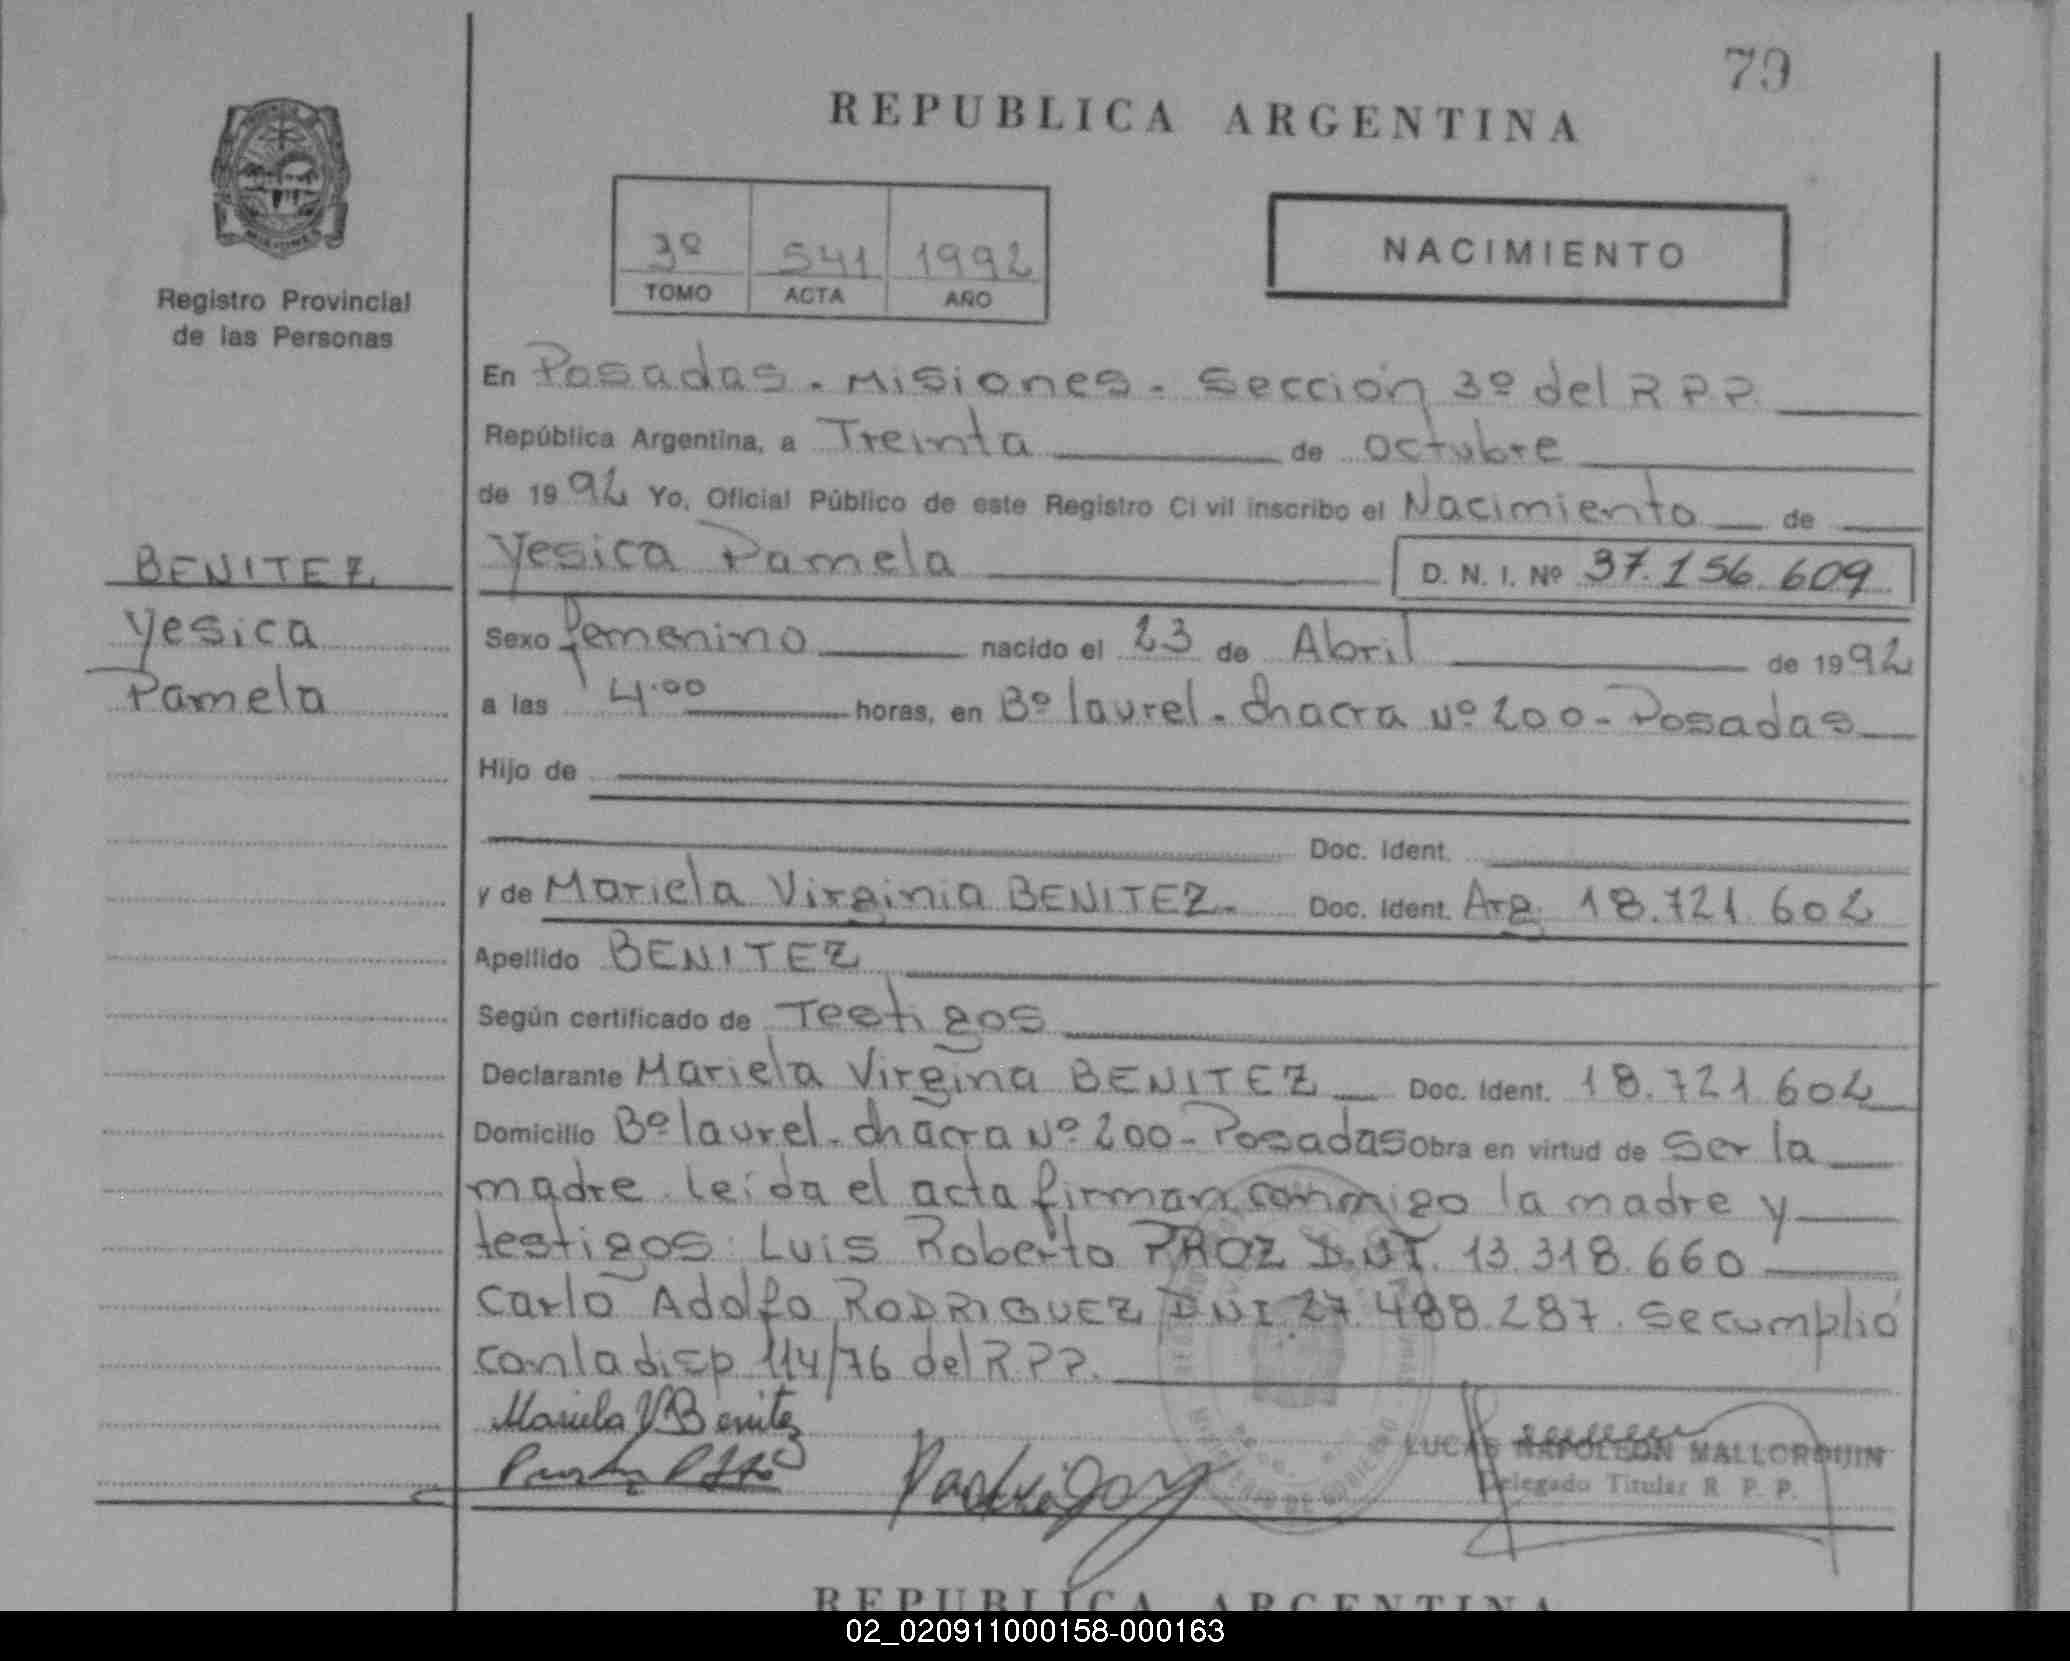 79
REPUBLICA ARGENTINA
3º 541 1992
TOMO ACTA AÑO
NACIMIENTO
Registro Provincial
de las Personas
En Posadas - Misiones - Sección 3º del R P P.
República Argentina, a Treinta de octubre
de 1992 Yo, Oficial Público de este Registro Civil inscribo el Nacimiento de
BENITEZ
Yesica
Pamela
Yesica Pamela D. N. I. Nº 37.156.609
Sexo femenino nacido el 23 de Abril de 1992
a las 4.00 horas, en Bº laurel - chacra Nº 200 - Posadas
Hijo de
Doc. Ident.
y de Mariela Virginia BENITEZ. Doc. Ident. Arg. 18.721.602
Apellido BENITEZ
Según certificado de Testigos
Declarante Mariela Virgina BENITEZ Doc. Ident. 18.721.602
Domicilio Bº laurel - chacra Nº 200 - Posadas Obra en virtud de ser la
madre. leída el acta firman conmigo la madre y
testigos: Luis Roberto PROZ D.N.I. 13.318.660
Carlo Adolfo RODRIGUEZ DNI 27.488.287. se cumplió
con la disp 114/76 del R.P.P.
Mariela V Benitez
LUCAS NAPOLEON MALLORQUIN
Delegado Titular R. P. P.
REPUBLICA ARGENTINA
02_020911000158-000163